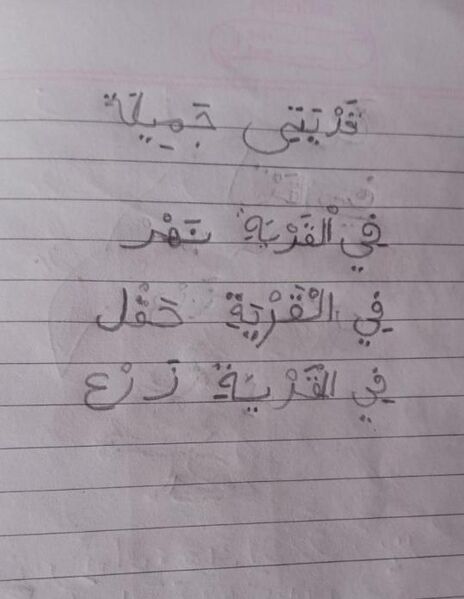 قَرْيَتِي جَمِيلَة
فِي الْقَرْيَةِ نَهْر
فِي الْقَرْيَةِ حَقْل
فِي الْقَرْيَةِ زَرْع